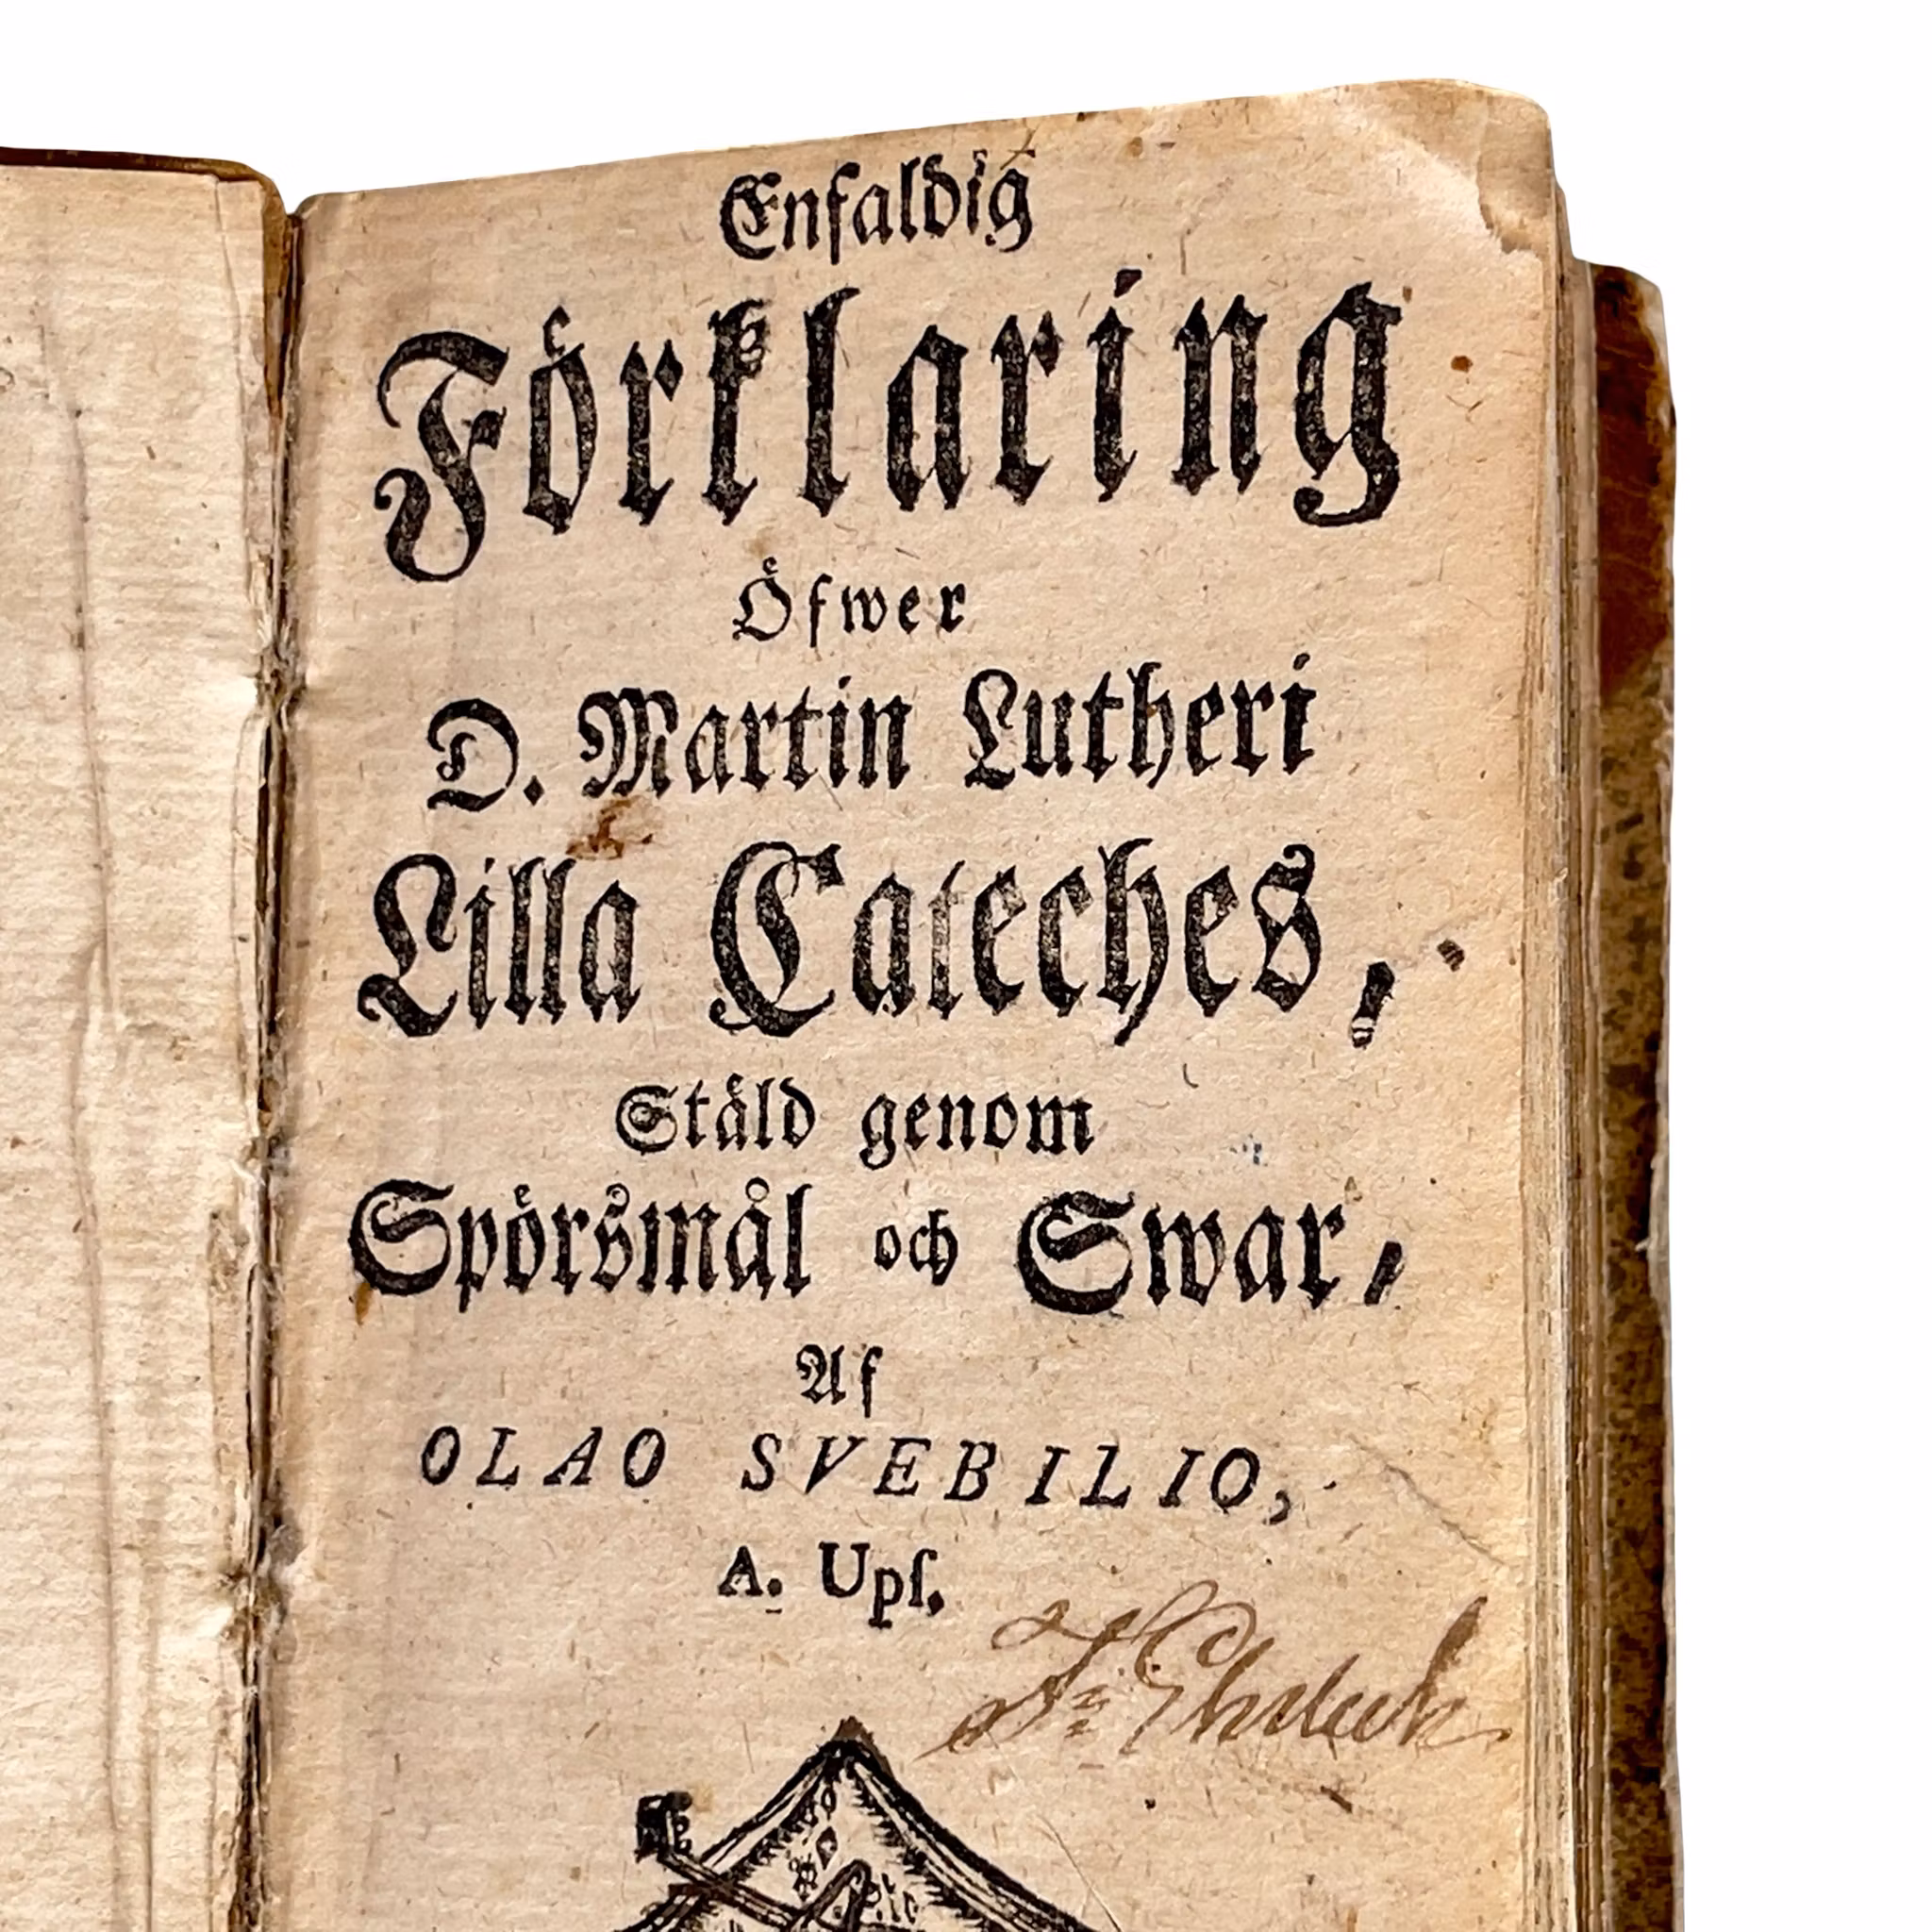 Enfaldig
Förklaring
Öfwer
D. Martin Lutheri
Lilla Cateches,
Stäld genom
Spörsmål och Swar,
Af
OLAO SVEBILIO,
A. Upſ.